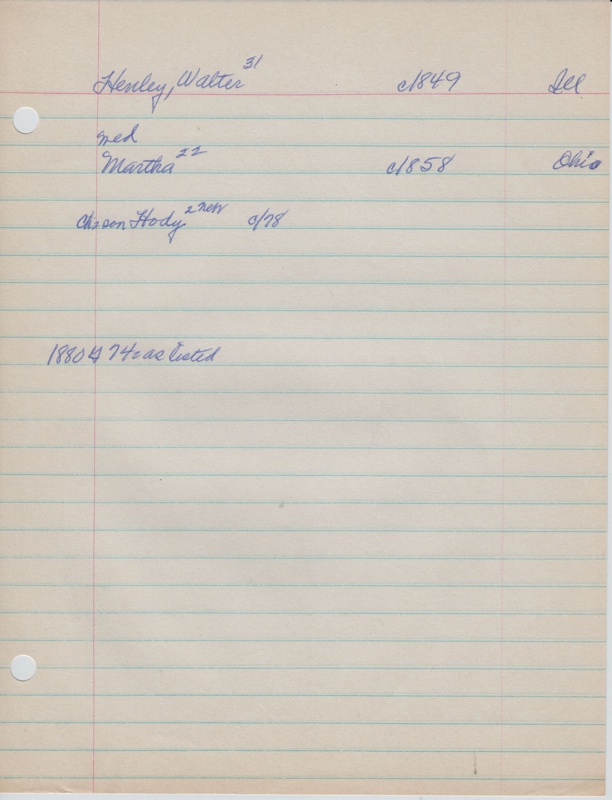 Henley, Walter 31 c1849 Ill
med
Martha 22 c1858 Ohio
Ch: son Hody 2 new c/78
1880 74: as listed